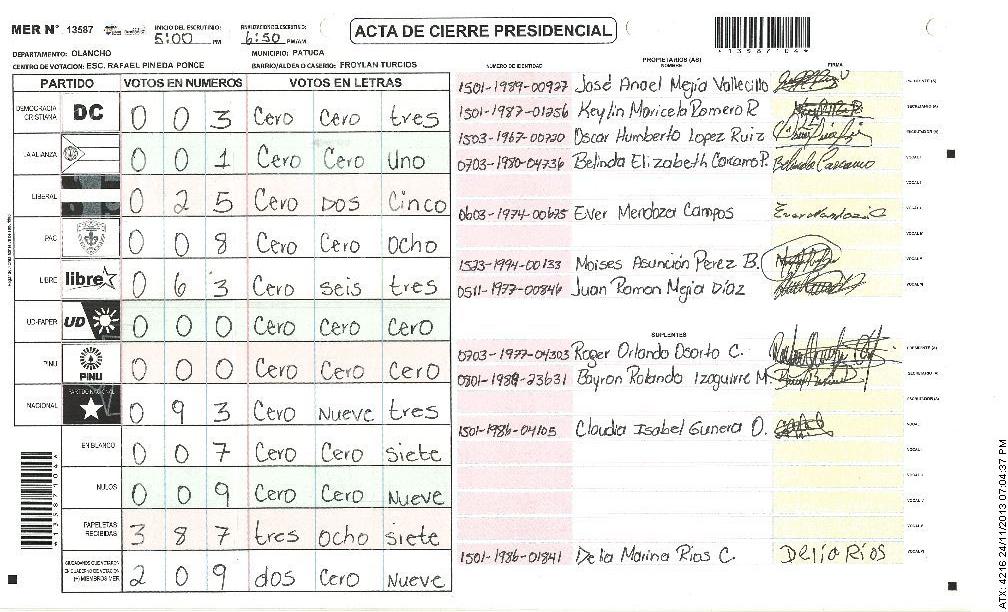 MER N° 13587 INICIO DEL ESCRUTINIO: 5:00 PM FINALIZACION DEL ESCRUTINIO: 6:50 PM/AM
ACTA DE CIERRE PRESIDENCIAL
DEPARTAMENTO: OLANCHO MUNICIPIO: PATUCA
CENTRO DE VOTACION: ESC. RAFAEL PINEDA PONCE BARRIO/ALDEA O CASERIO: FROYLAN TURCIOS
PARTIDO VOTOS EN NUMEROS VOTOS EN LETRAS
DEMOCRACIA CRISTIANA DC 0 0 3 Cero Cero tres
LA ALIANZA 0 0 1 Cero Cero Uno
LIBERAL 0 2 5 Cero Dos Cinco
PAC 0 0 8 Cero Cero Ocho
LIBRE libre 0 6 3 Cero seis tres
UD-FAPER UD 0 0 0 Cero Cero Cero
PINU PINU 0 0 0 Cero Cero Cero
NACIONAL PARTIDO NACIONAL 0 9 3 Cero Nueve tres
EN BLANCO 0 0 7 Cero Cero siete
NULOS 0 0 9 Cero Cero Nueve
PAPELETAS RECIBIDAS 3 8 7 tres ocho siete
(+) MIEMBROS MER 2 0 9 dos Cero Nueve
PROPIETARIOS (AS)
NUMERO DE IDENTIDAD NOMBRE FIRMA
1501-1989-00927 José Angel Mejia Vallecillo
1501-1987-01256 Keylin Maricela Romero R
1503-1967-00720 Oscar Humberto Lopez Ruiz
0703-1980-04736 Belinda Elizabeth Carcamo P. Belinda Carcamo
0603-1974-00675 Ever Mendoza Campos
1523-1994-00133 Moises Asunción Perez B.
0511-1977-00846 Juan Ramon Mejia Díaz
SUPLENTES
0703-1977-04303 Roger Orlando Osorto C.
0801-1989-23631 Bayron Rolando Izaguirre M.
1501-1986-04105 Claudia Isabel Gunera O.
1501-1986-01841 Delia Marina Rios C. Delia Ríos
ATX: 4216 24/11/2013 07:04:37 PM